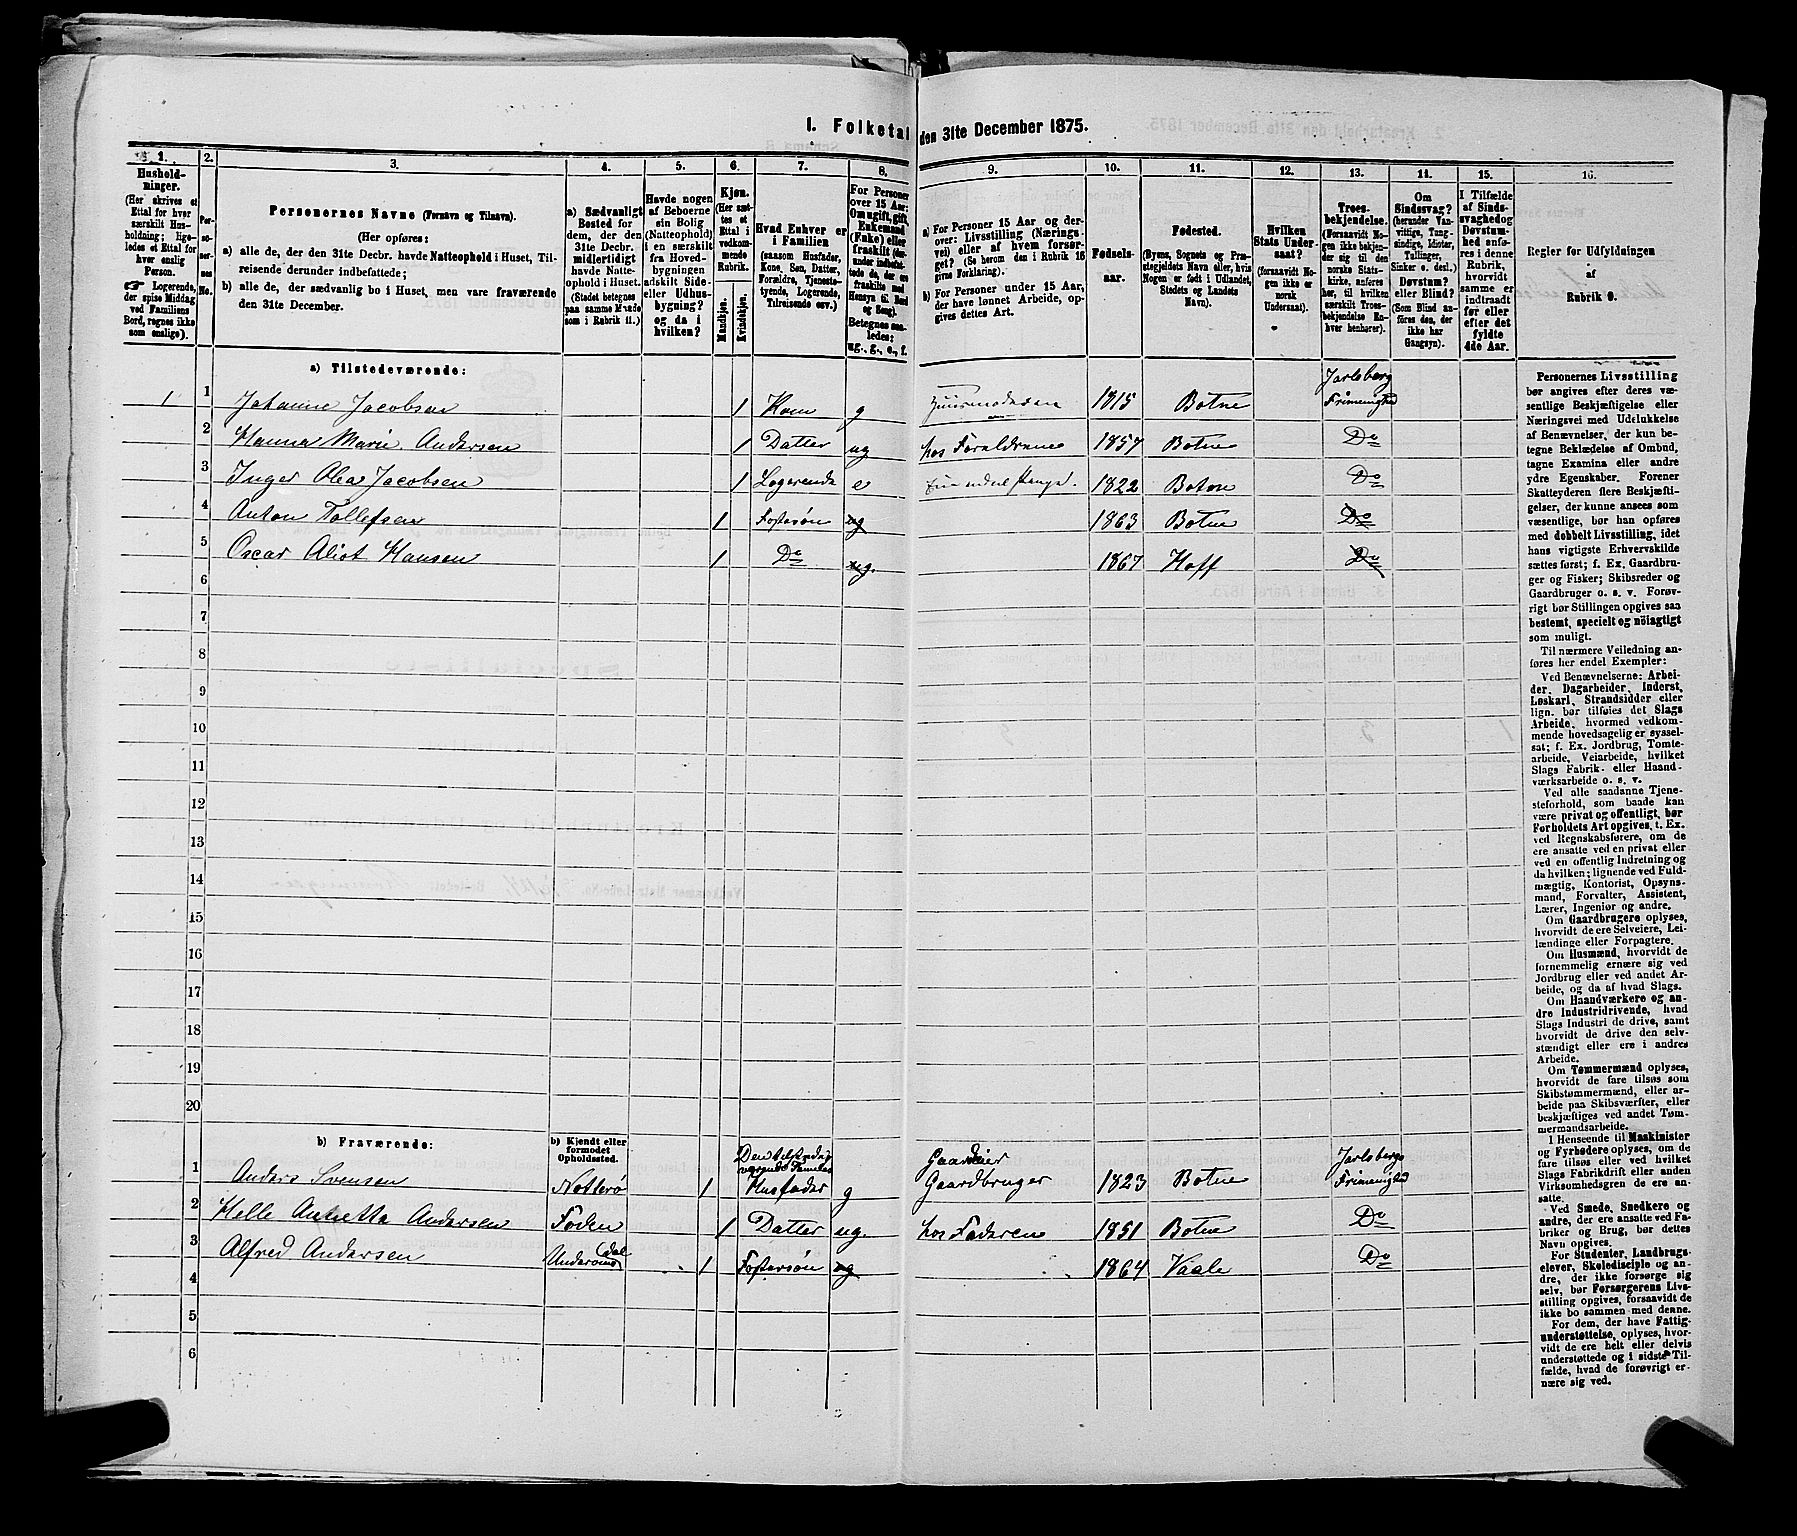 I. Folketal den 31te December 1875.
1. 2. 3. 4. 5. 6. 7. 8. 9. 10. 11. 12. 13. 14. 15. 16.
Husholdninger.
(Her skrives et
Ettal for hver
særskilt Husholdning;
ligeledes et Ettal for
hver enslig
Person.
Logerende,
der spise Middag
ved Familiens
Bord, regnes ikke
som enslige).
Personernes No.
Personernes Navne (Fornavn og Tilnavn).
(Her opføres:
a) alle de, der den 31te Decbr. havde Natteophold i Huset, Tilreisende derunder indbefattede;
b) alle de, der sædvanlig bo i Huset, men vare fraværende
den 31te December.
a) Sædvanligt
Bosted for
dem, der den
31te Decbr.
midlertidigt
havde Natteophold i Huset.
(Stedet betegnes
paa samme Maade
som i Rubrik 11.)
Havde nogen
af Beboerne
sin Bolig
(Natteophold)
i en særskilt
fra Hovedbygningen
adskilt Side-
eller Udhusbygning?
og da i
hvilken?
Kjøn.
(Her sættes et
Ettal i
vedkommende
Rubrik.
Mandkjøn.
Kvindekjøn.
Hvad Enhver er
i Familien
(saasom Husfader,
Kone, Søn, Datter,
Forældre, Tjenestetyende, Logerende,
Tilreisende osv.)
For Personer
over 15 Aar:
Om ugift, gift,
Enkemand
(Enke) eller
fraskilt
Betegnes saaledes:
ug., g., e., f.
a) For Personer 15 Aar og derover: Livsstilling (Næringsvei) eller af hvem forsørget? (Se herom den i Rubrik 16
givne Forklaring).
b) For Personer under 15 Aar,
der have lønnet Arbeide, opgives dettes Art.
Fødselsaar.
Fødested.
(Byens, Sognets og Præstegjeldets Navn eller, hvis
Nogen er født i Udlandet,
Stedets og Landets
Navn).
Hvilken
Stats Undersaat?
(forsaavidt Nogen ikke er
norsk
Undersaat).
Troesbekjendelse.
(Forsaavidt Nogen ikke bekjender sig til den
norske Statskirke, anføres
her, til hvilken
særskilt Troesbekjendelse Enhver henhører).
Om
Sindssvag?
(herunder Vanvittige, Tungsindige, Idioter,
Tullinger,
Sinker o. desl.)
Døvstum?
eller Blind?
(Som Blind anføres den, der
ikke har
Gangsyn).
I Tilfælde
af Sindssvaghed og
Døvstumhed anføres i denne
Rubrik,
hvorvidt
samme er
indtraadt
før eller
efter det
fyldte
4de Aar.
Regler for Udfyldningen
af
Rubrik 9.
a) Tilstedeværende:
1 1 Johanne Jacobsen 1 Kone g 1815 Botne Jarlsberg Frimenighed
2 Hanna Marie Andersen 1 Datter ug hos Forældrene 1857 Botne Do
3 Inger Olea Jacobsen 1 Logerende e 1822 Botne Do
4 Anton Tollefsen 1 Fostersøn ug 1863 Botne Do
5 Oscar Aliot Hansen 1 Do ug. 1867 Hoff Do
6
7
8
9
10
11
12
13
14
15
16
17
18
19
20
b) Fraværende: b) Kjendt eller
formodet
Opholdssted.
1 Anders Svensen Nøtterø 1 Husfader g Gaardeier Gaardbruger 1823 Botne Jarlsbergs Frimenighed
2 Helle Antietta Andersen Foden 1 Datter ug. hos Faderen 1851 Botne Do
3 Alfred Andersen 1 Fostersøn ug 1864 Vaale Do
4
5
6
Personernes Livsstilling
bør angives efter deres væsentlige Beskjæftigelse eller
Næringsvei med Udelukkelse
af Benævnelser, der kun betegne Beklædelse af Ombud,
tagne Examina eller andre
ydre Egenskaber. Forener
Skatteyderen flere Beskjæftigelser, der kunne ansees som
væsentlige, bør han opføres
med dobbelt Livsstilling, idet
hans vigtigste Erhvervskilde
sættes først; f. Ex. Gaardbruger og Fisker; Skibsreder og
Gaardbruger o. s. v. Forøvrigt bør Stillingen opgives saa
bestemt, specielt og nøiagtigt
som muligt.
Til nærmere Veiledning anføres her endel Exempler:
Ved Benævnelserne: Arbeider, Dagarbeider, Inderst,
Løskarl, Strandsidder eller
lign. bør tilføies det Slags
Arbeide, hvormed vedkommende hovedsagelig er sysselsat; f. Ex. Jordbrug, Tomtearbeide, Veiarbeide, hvilket
Slags Fabrik- eller Haandværksarbeide o. s. v.
Ved alle saadanne Tjenesteforhold, som baade kan
være privat og offentligt, bør
Forholdets Art opgives, t. Ex.
ved Regnskabsførere, om de
ere ansatte ved en privat eller
ved en offentlig Indretning og
da hvilken; lignende ved Fuldmægtig, Kontorist, Opsynsmand, Forvalter, Assistent,
Lærer, Ingeniør og andre.
Om Gaardbrugere oplyses,
hvorvidt de ere Selveiere, Leilændinge eller Forpagtere.
Om Husmænd, hvorvidt de
fornemmelig ernære sig ved
Jordbrug eller ved andet Arbeide, og da af hvad Slags.
Om Haandværkere og andre Industridrivende, hvad
Slags Industri de drive, samt
hvorvidt de drive den selvstændigt eller ere i andres
Arbeide.
Om Tømmermænd oplyses,
hvorvidt de fare tilsøs som
Skibstømmermænd, eller arbeide paa Skibsværfter, eller
beskjæftiges ved andet Tømmermandsarbeide.
I Henseende til Maskinister
og Fyrbødere oplyses, om de
fare tilsøs eller ved hvilket
Slags Fabrikdrift eller anden
Virksomhedsgren de ere ansatte.
Ved Smede, Snedkere og
andre, der ere ansatte ved Fabriker og Brug, bør dettes
Navn opgives.
For Studenter, Landbrugselever, Skoledisciple og andre, der ikke forsørge sig
selv, bør Forsørgerens Livsstilling opgives, forsaavidt de
ikke bo sammen med denne.
For dem, der have Fattigunderstøttelse, oplyses, hvorvidt de ere helt eller delvis
understøttede og i sidste Tilfælde, hvad de forøvrigt ernære sig ved.